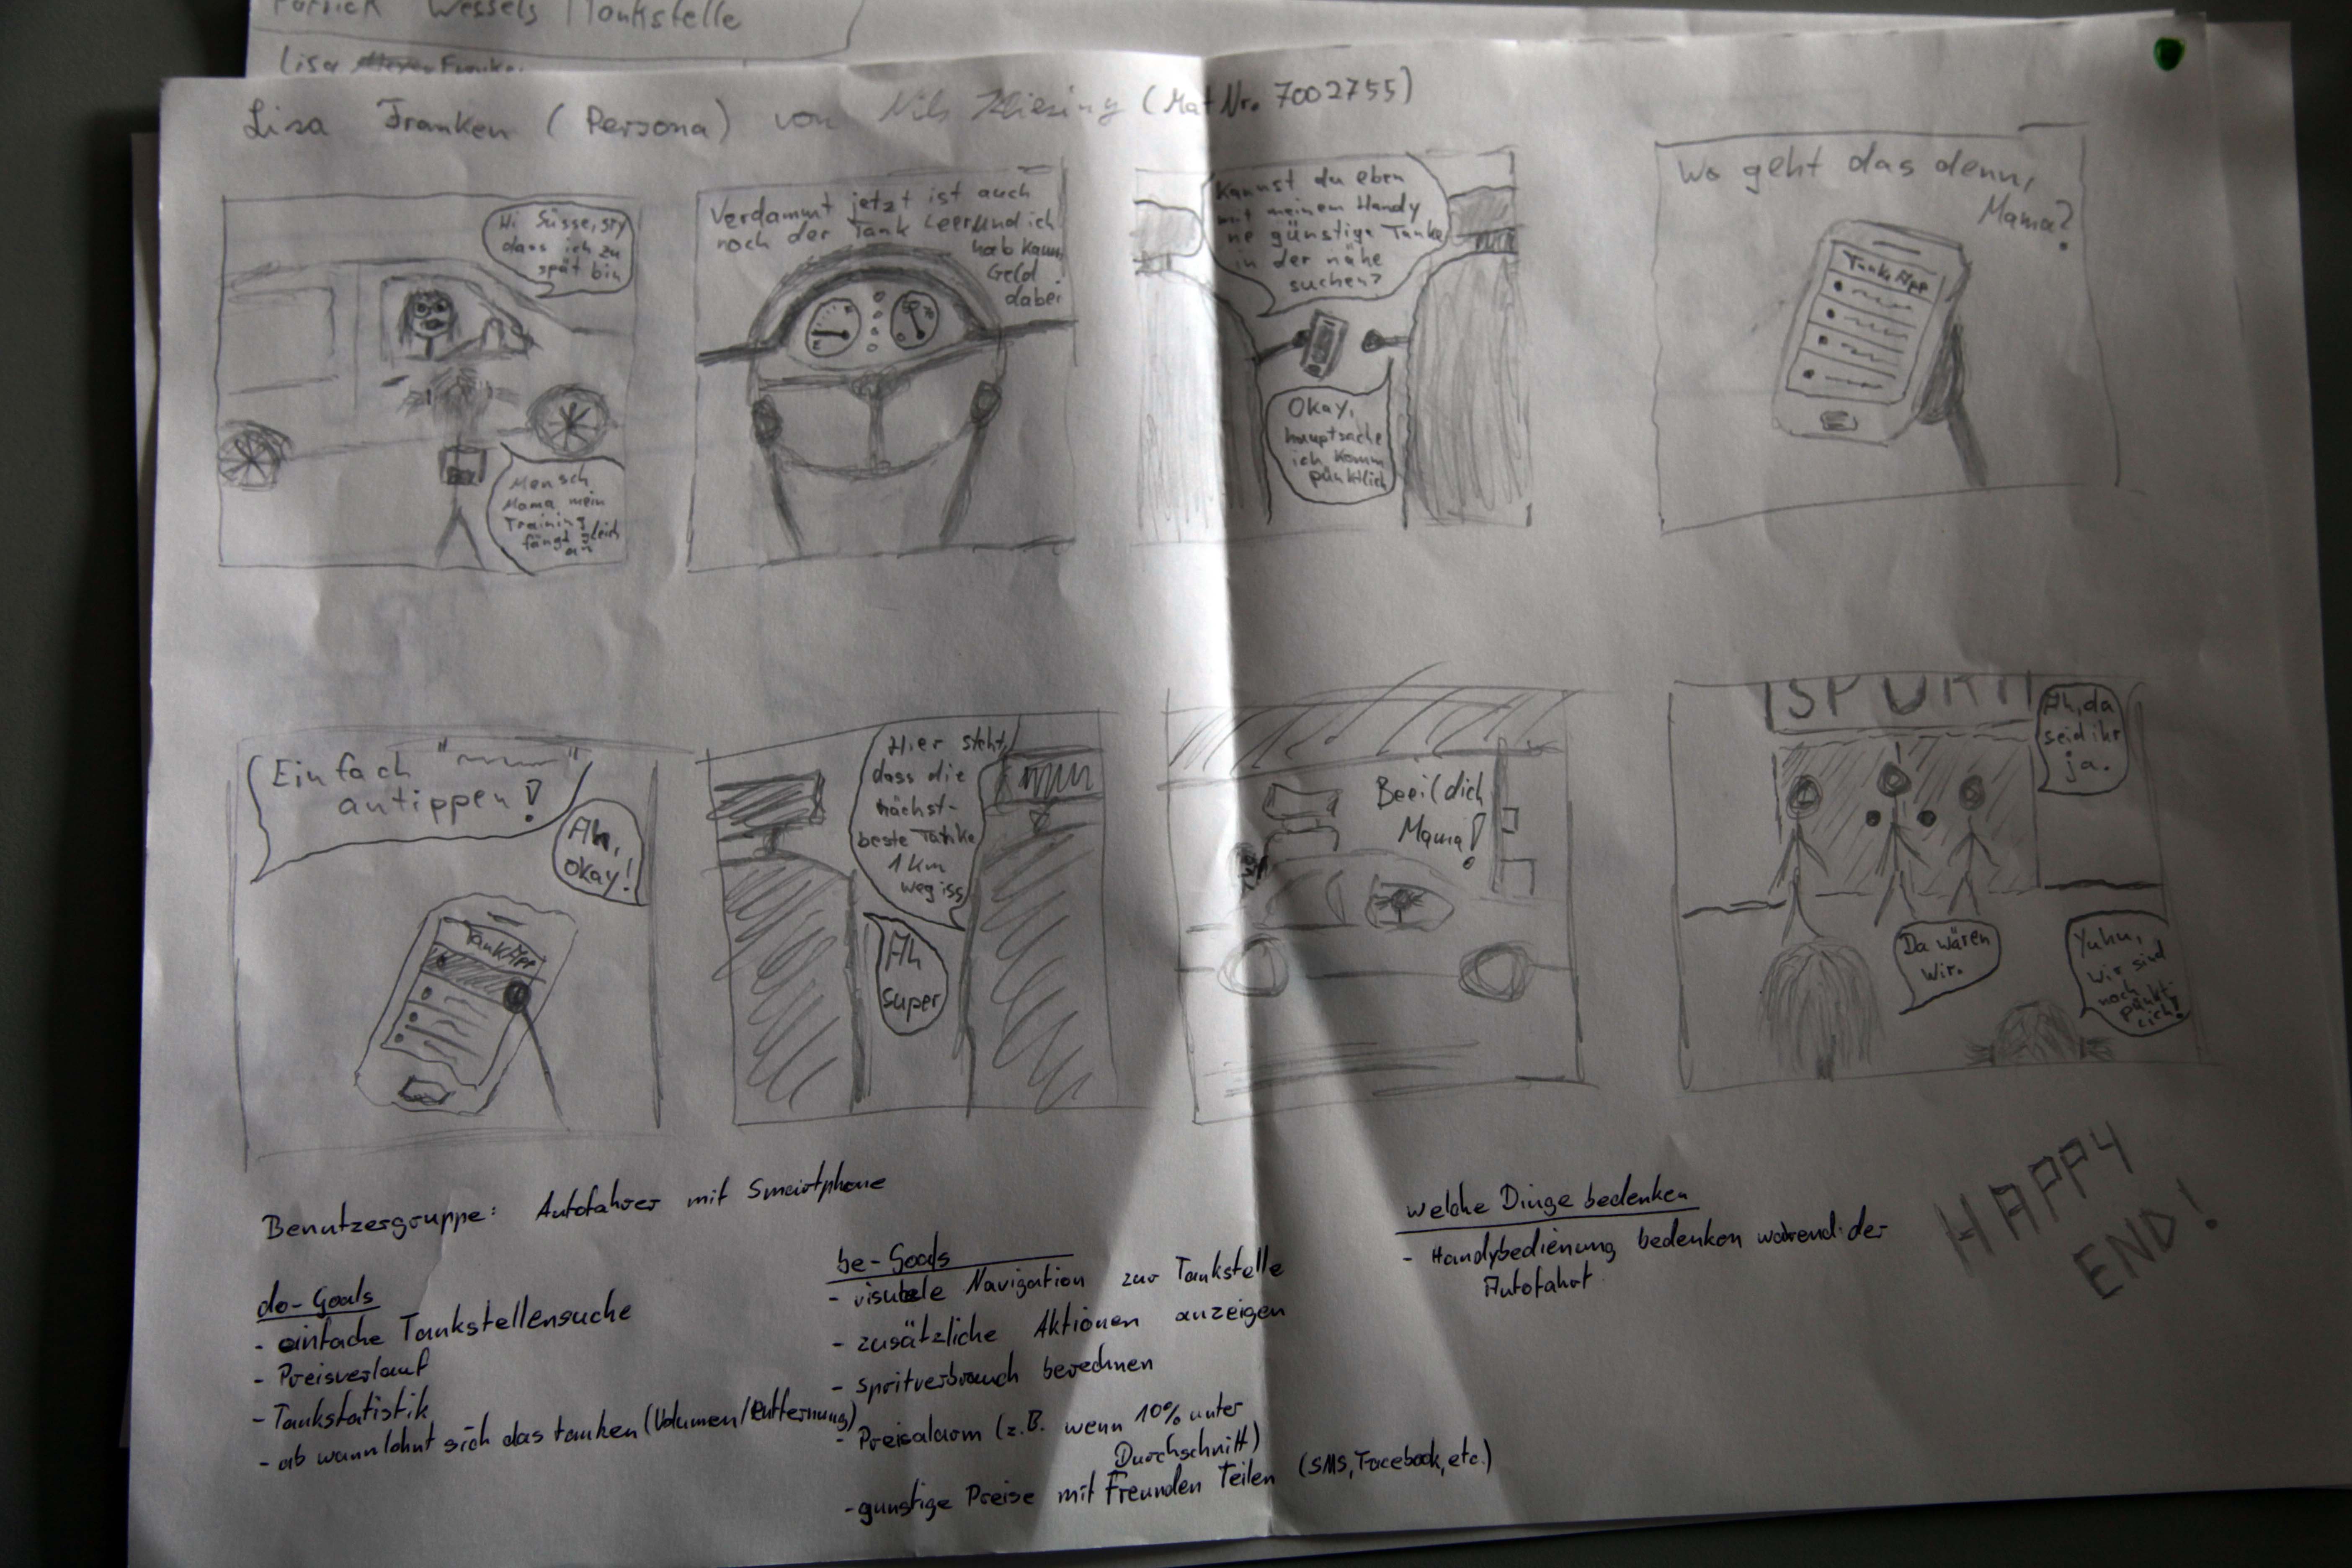 Wessels Tankstelle
Lisa
Lisa Franken (Persona) von Nils (Mat Nr. 7002755)
Hi Süsse, sry
dass ich zu
spät bin
Mensch
Mama mein
Training
fängt gleich
an
Verdammt jetzt ist auch
noch der Tank leer und ich
hab kaum
Geld
dabei
Kannst du eben
mit meinem Handy
ne günstige Tanke
in der nähe
suchen?
Okay,
hauptsache
ich komm
pünktlich
Wo geht das denn,
Mama?
Tank App
Einfach "~~~"
antippen!
Ah,
okay!
TankApp
Hier steht,
dass die
nächst-
beste Tanke
1 km
weg iss
Ah
super
Beeil dich
Mama!
SPORT
Ah, da
seid ihr
ja.
Da wären
wir.
Yuhu,
wir sind
noch
pünkt-
lich!
HAPPY
END!
Benutzergruppe: Autofahrer mit Smartphone
do-Goals
- einfache Tankstellensuche
- Preisverlauf
- Tankstatistik
- ab wann lohnt sich das tanken (Volumen/Entfernung)
be-Goals
- visuelle Navigation zur Tankstelle
- zusätzliche Aktionen anzeigen
- spritverbrauch berechnen
- Preisalarm (z.B. wenn 10% unter
Durchschnitt)
- günstige Preise mit Freunden Teilen (SMS, Facebook, etc.)
welche Dinge bedenken
- Handybedienung bedenken während der
Autofahrt